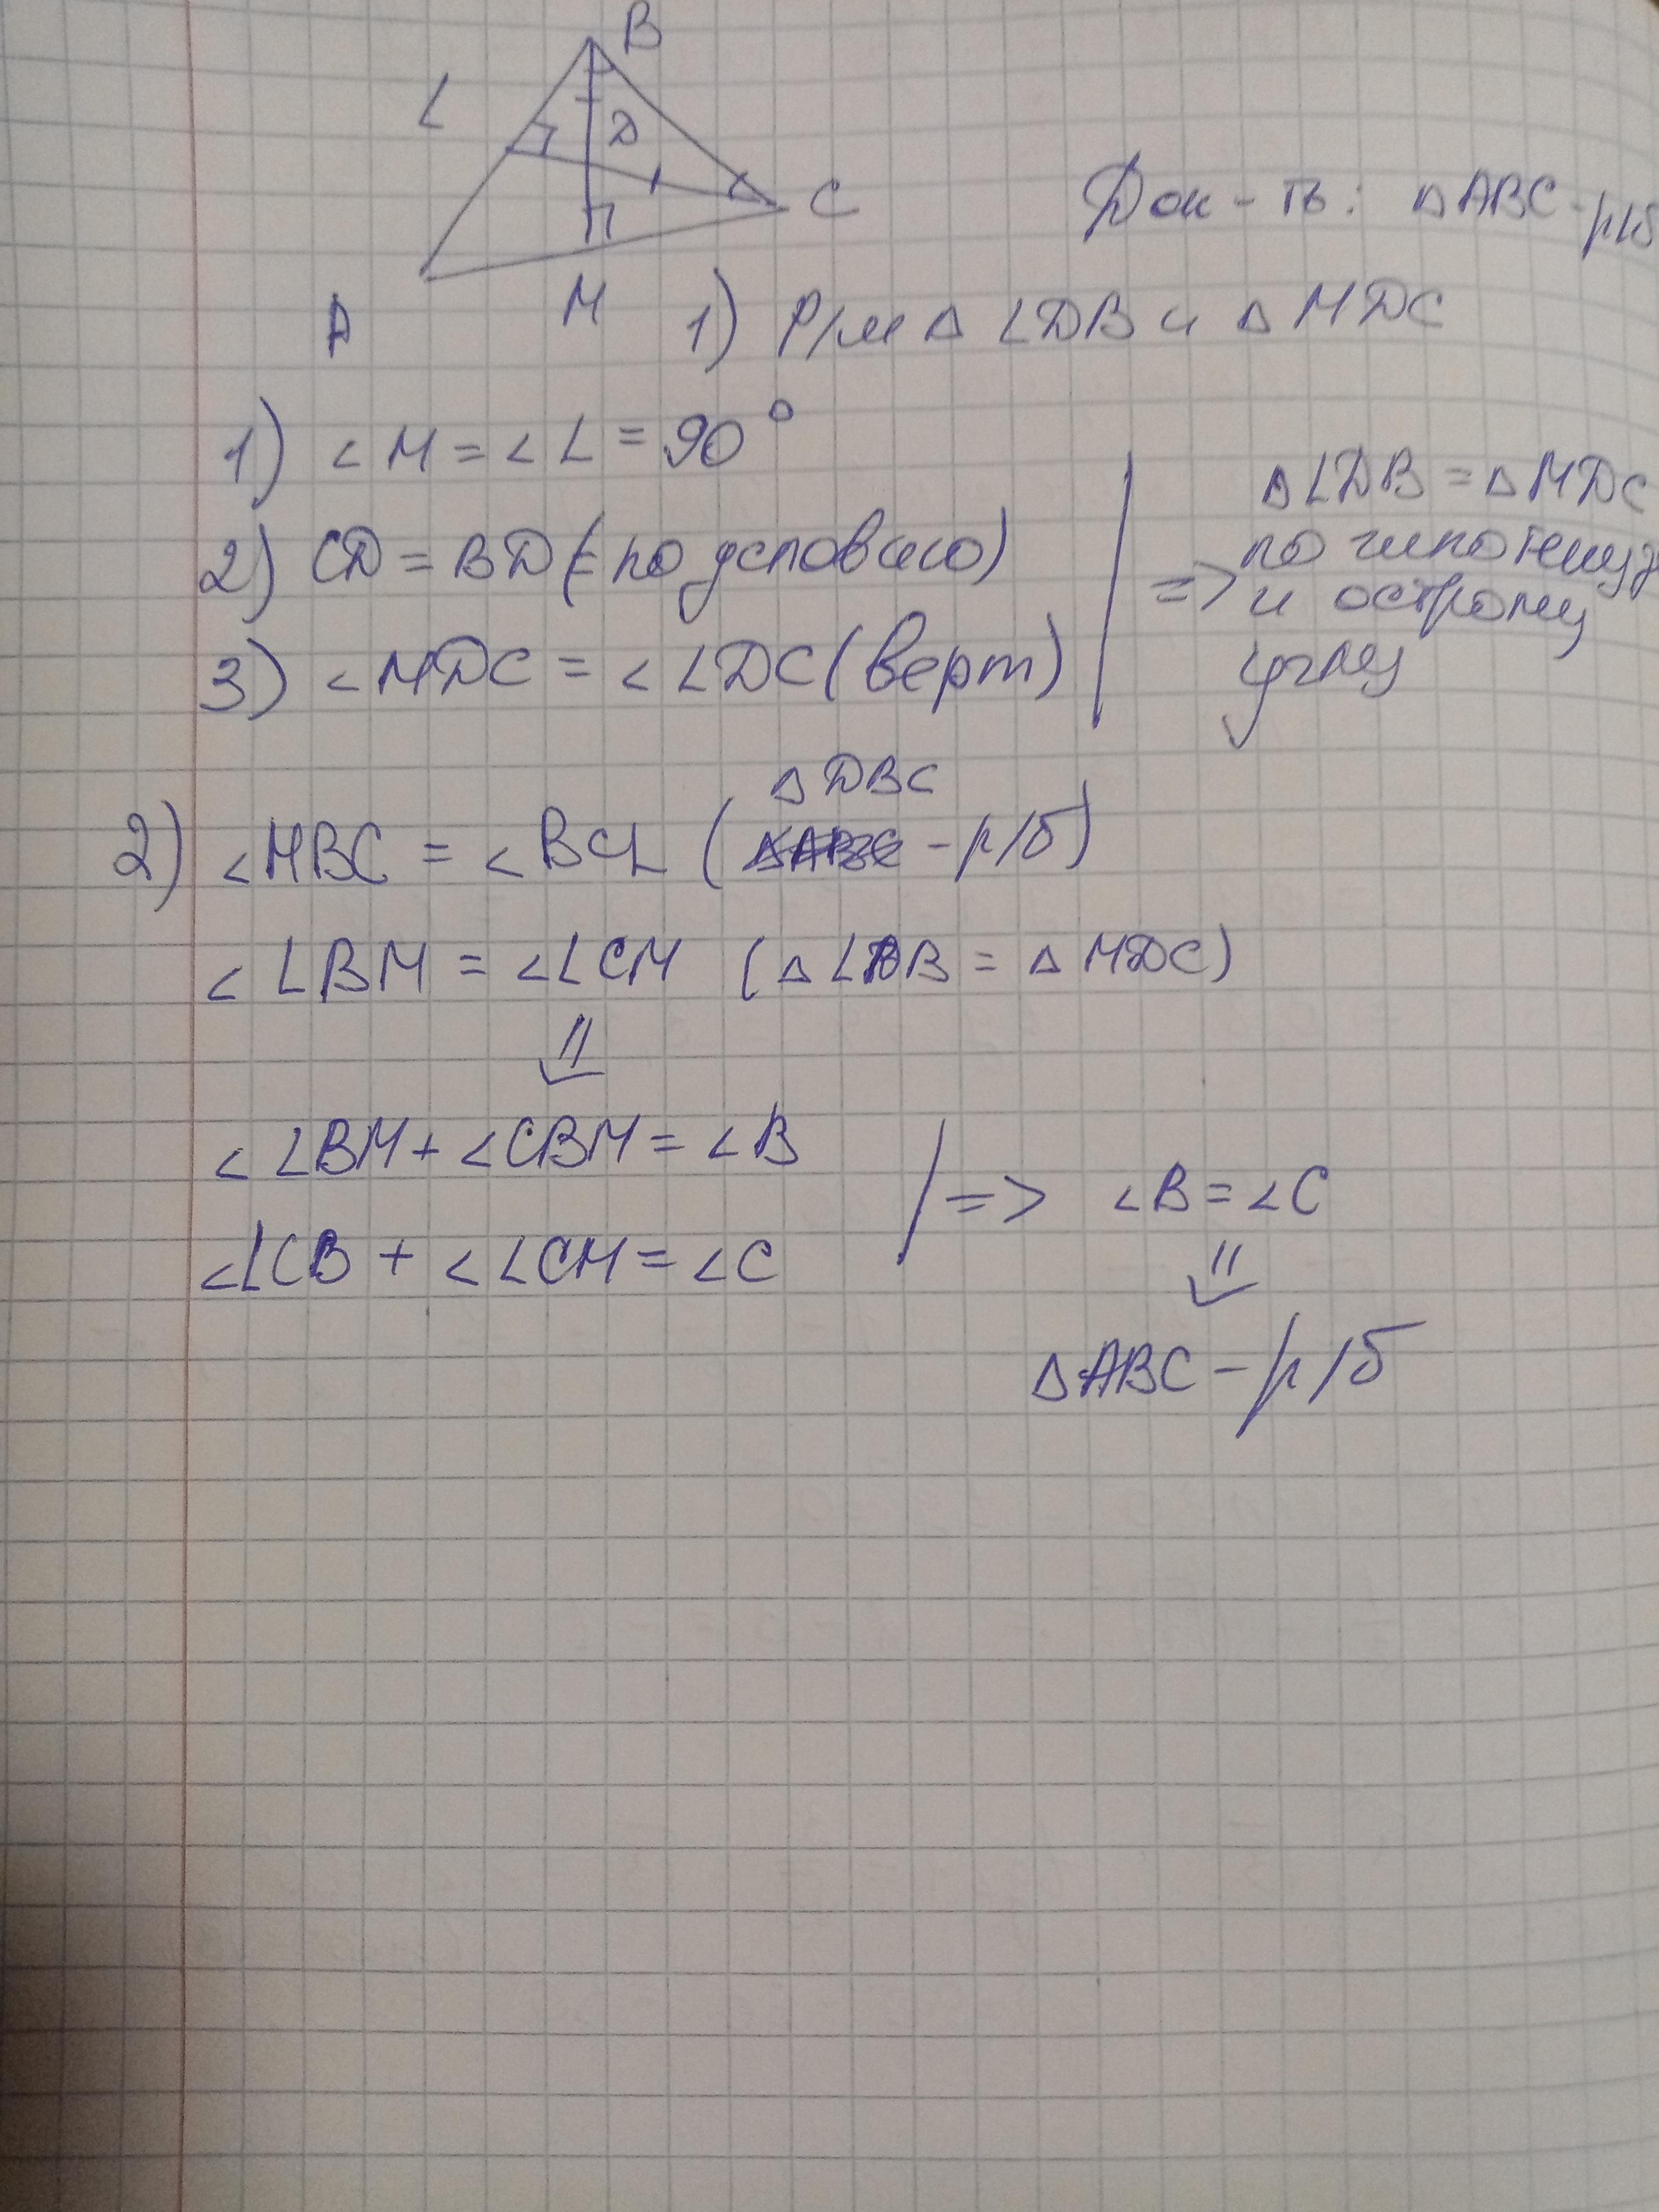 B
L
D
C
Док-ть: △ABC-р/б
A
M
1) Р/м △ LDB и △ MDC
1) ∠M = ∠L = 90°
2) CD = BD (по условию)
3) ∠MDC = ∠LDC (верт)
=> △LDB = △MDC
по гипотенузе
и острому
углу
△DBC
2) ∠MBC = ∠BCL ( - р/б)
∠LBM = ∠LCM (△LDB = △MDC)
⇓
∠LBM + ∠CBM = ∠B
∠LCB + ∠LCM = ∠C
=> ∠B = ∠C
⇓
△ABC - р/б